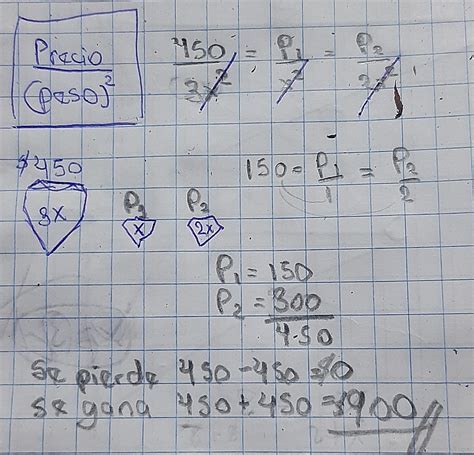 Precio / (peso)² 450/3x² = P₁/x² = P₂/2x²
$450
3x P₂ x P₂ 2x
150 = P₁/1 = P₂/2
P₁ = 150
P₂ = 300
450
Se pierde 450 - 450 = 0
se gana 450 + 450 = 900